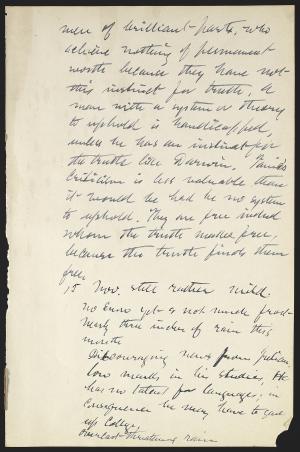 men of brilliant parts, who
achieve nothing of permanent
worth because they have not
this instinct for truth. A
man with a system or theory
to uphold is handicapped,
unless he has an instinct for
the truth like Darwin. Taine's
Criticism is less valuable than
it would be had he no system
to uphold. They are free indeed
whom the truth makes free,
because the truth finds them
free.
15 Nov. still rather mild.
no snow yet & not much frost
nearly three inches of rain this
month
Discouraging news from Julian,
low marks in his studies, He
has no talent for languages; in
consequence he may have to give
up College,
overcast threatening rain